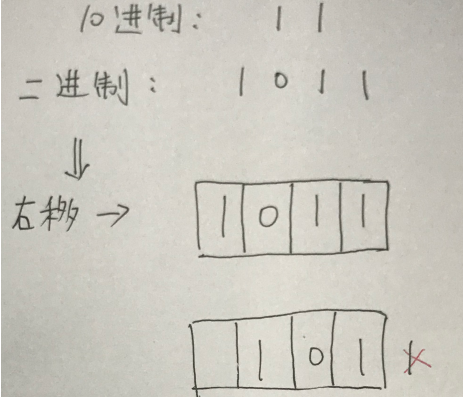 10进制: 11
二进制: 1011
右移→ 1011
101 1